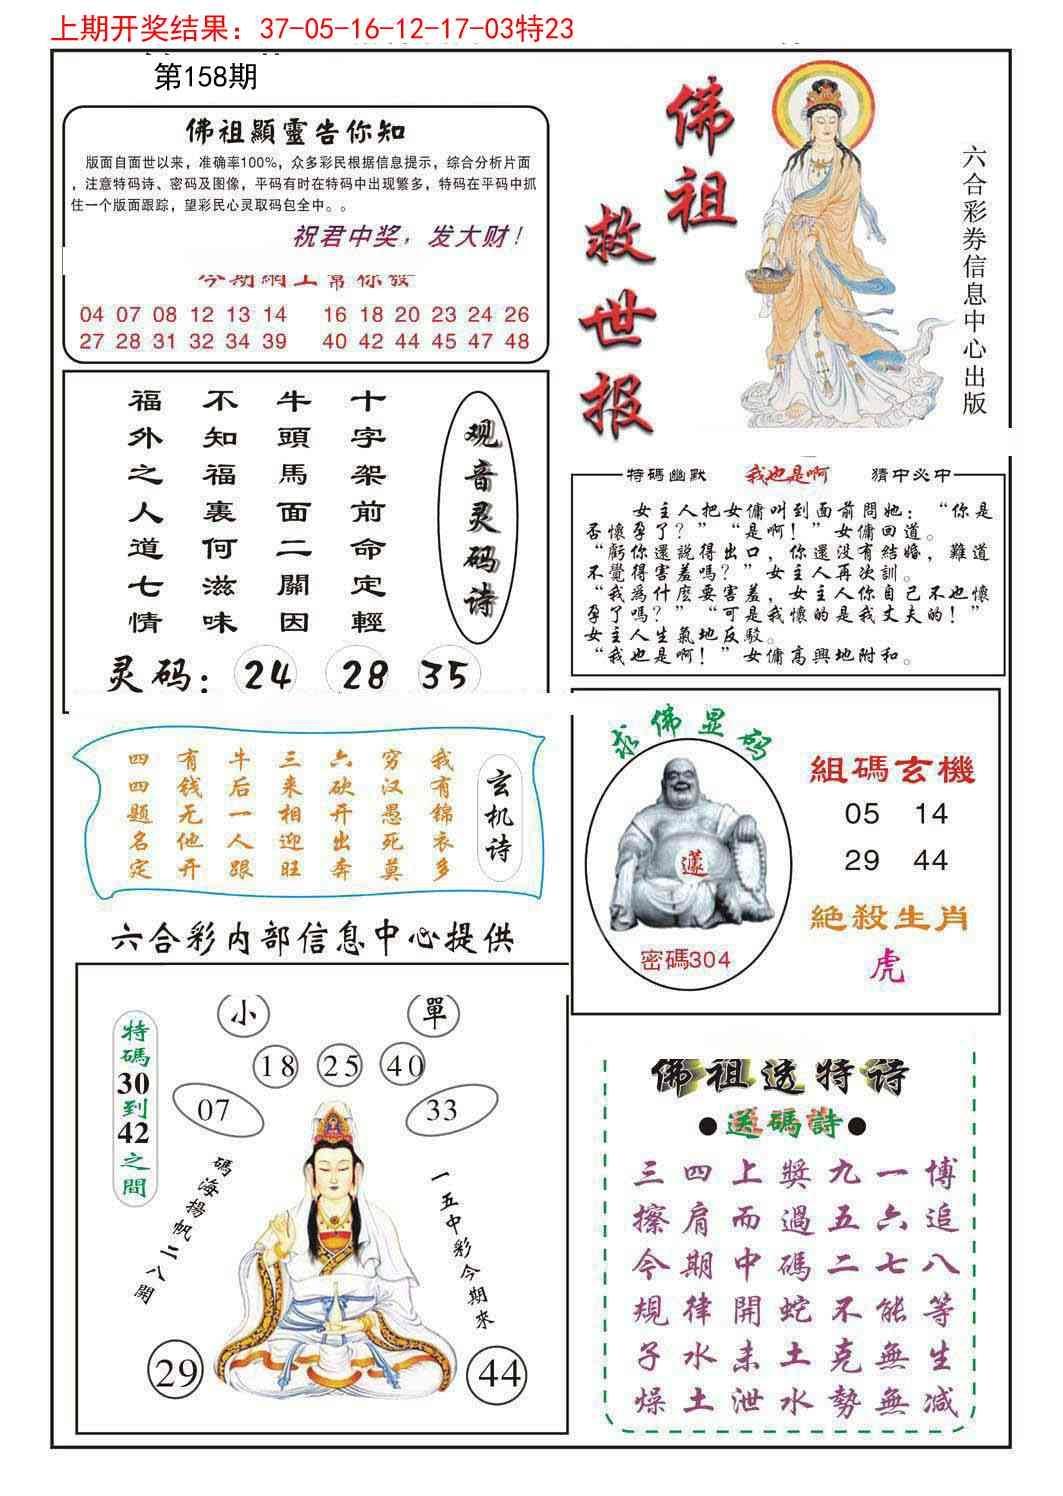 上期开奖结果：37-05-16-12-17-03特23
第158期
佛祖顯靈告你知
版面自面世以来，准确率100%，众多彩民根据信息提示，综合分析片面
，注意特码诗、密码及图像，平码有时在特码中出现繁多，特码在平码中抓
住一个版面跟踪，望彩民心灵取码包全中。。
祝君中奖，发大财！
04 07 08 12 13 14 16 18 20 23 24 26
27 28 31 32 34 39 40 42 44 45 47 48
佛祖
救世报
六合彩券信息中心出版
观音灵码诗
十字架前命定輕
牛頭馬面二關因
不知福裏何滋味
福外之人道七情
灵码：24 28 35
特碼幽默 我也是啊 猜中必中
女主人把女傭叫到面前問她：“你是
否懷孕了？”“是啊！”女傭回道。
“虧你還説得出口，你還没有結婚，難道
不覺得害羞嗎？”女主人再次訓。
“我為什麽要害羞，女主人你自己不也懷
孕了嗎？”“可是我懷的是我丈夫的！”
女主人生氣地反駁。
“我也是啊！”女傭高興地附和。
玄机诗
我有锦衣多
穷汉愚死莫
六砍开出奔
三来相迎旺
牛后一人跟
有钱无他开
四四题名定
六合彩内部信息中心提供
求佛显码
密碼304
組碼玄機
05 14
29 44
絶殺生肖
虎
特碼30到42之間
小 單
18 25 40
07 33
碼海揚帆二八開
一五中彩今期來
29 44
佛祖透特诗
●送碼詩●
三四上獎九一博
擦肩而過五六追
今期中碼二七八
規律開蛇不能等
子水未土克無生
燥土泄水勢無减